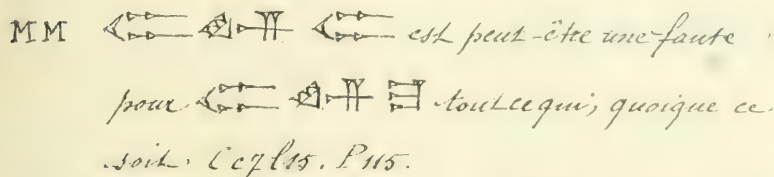 MM 𒈪 𒅎 𒈪 est peut-être une faute
pour 𒈪 𒅎 𒈠 tout ce qui, quoique ce
soit. C c 7 l 15. P 115.